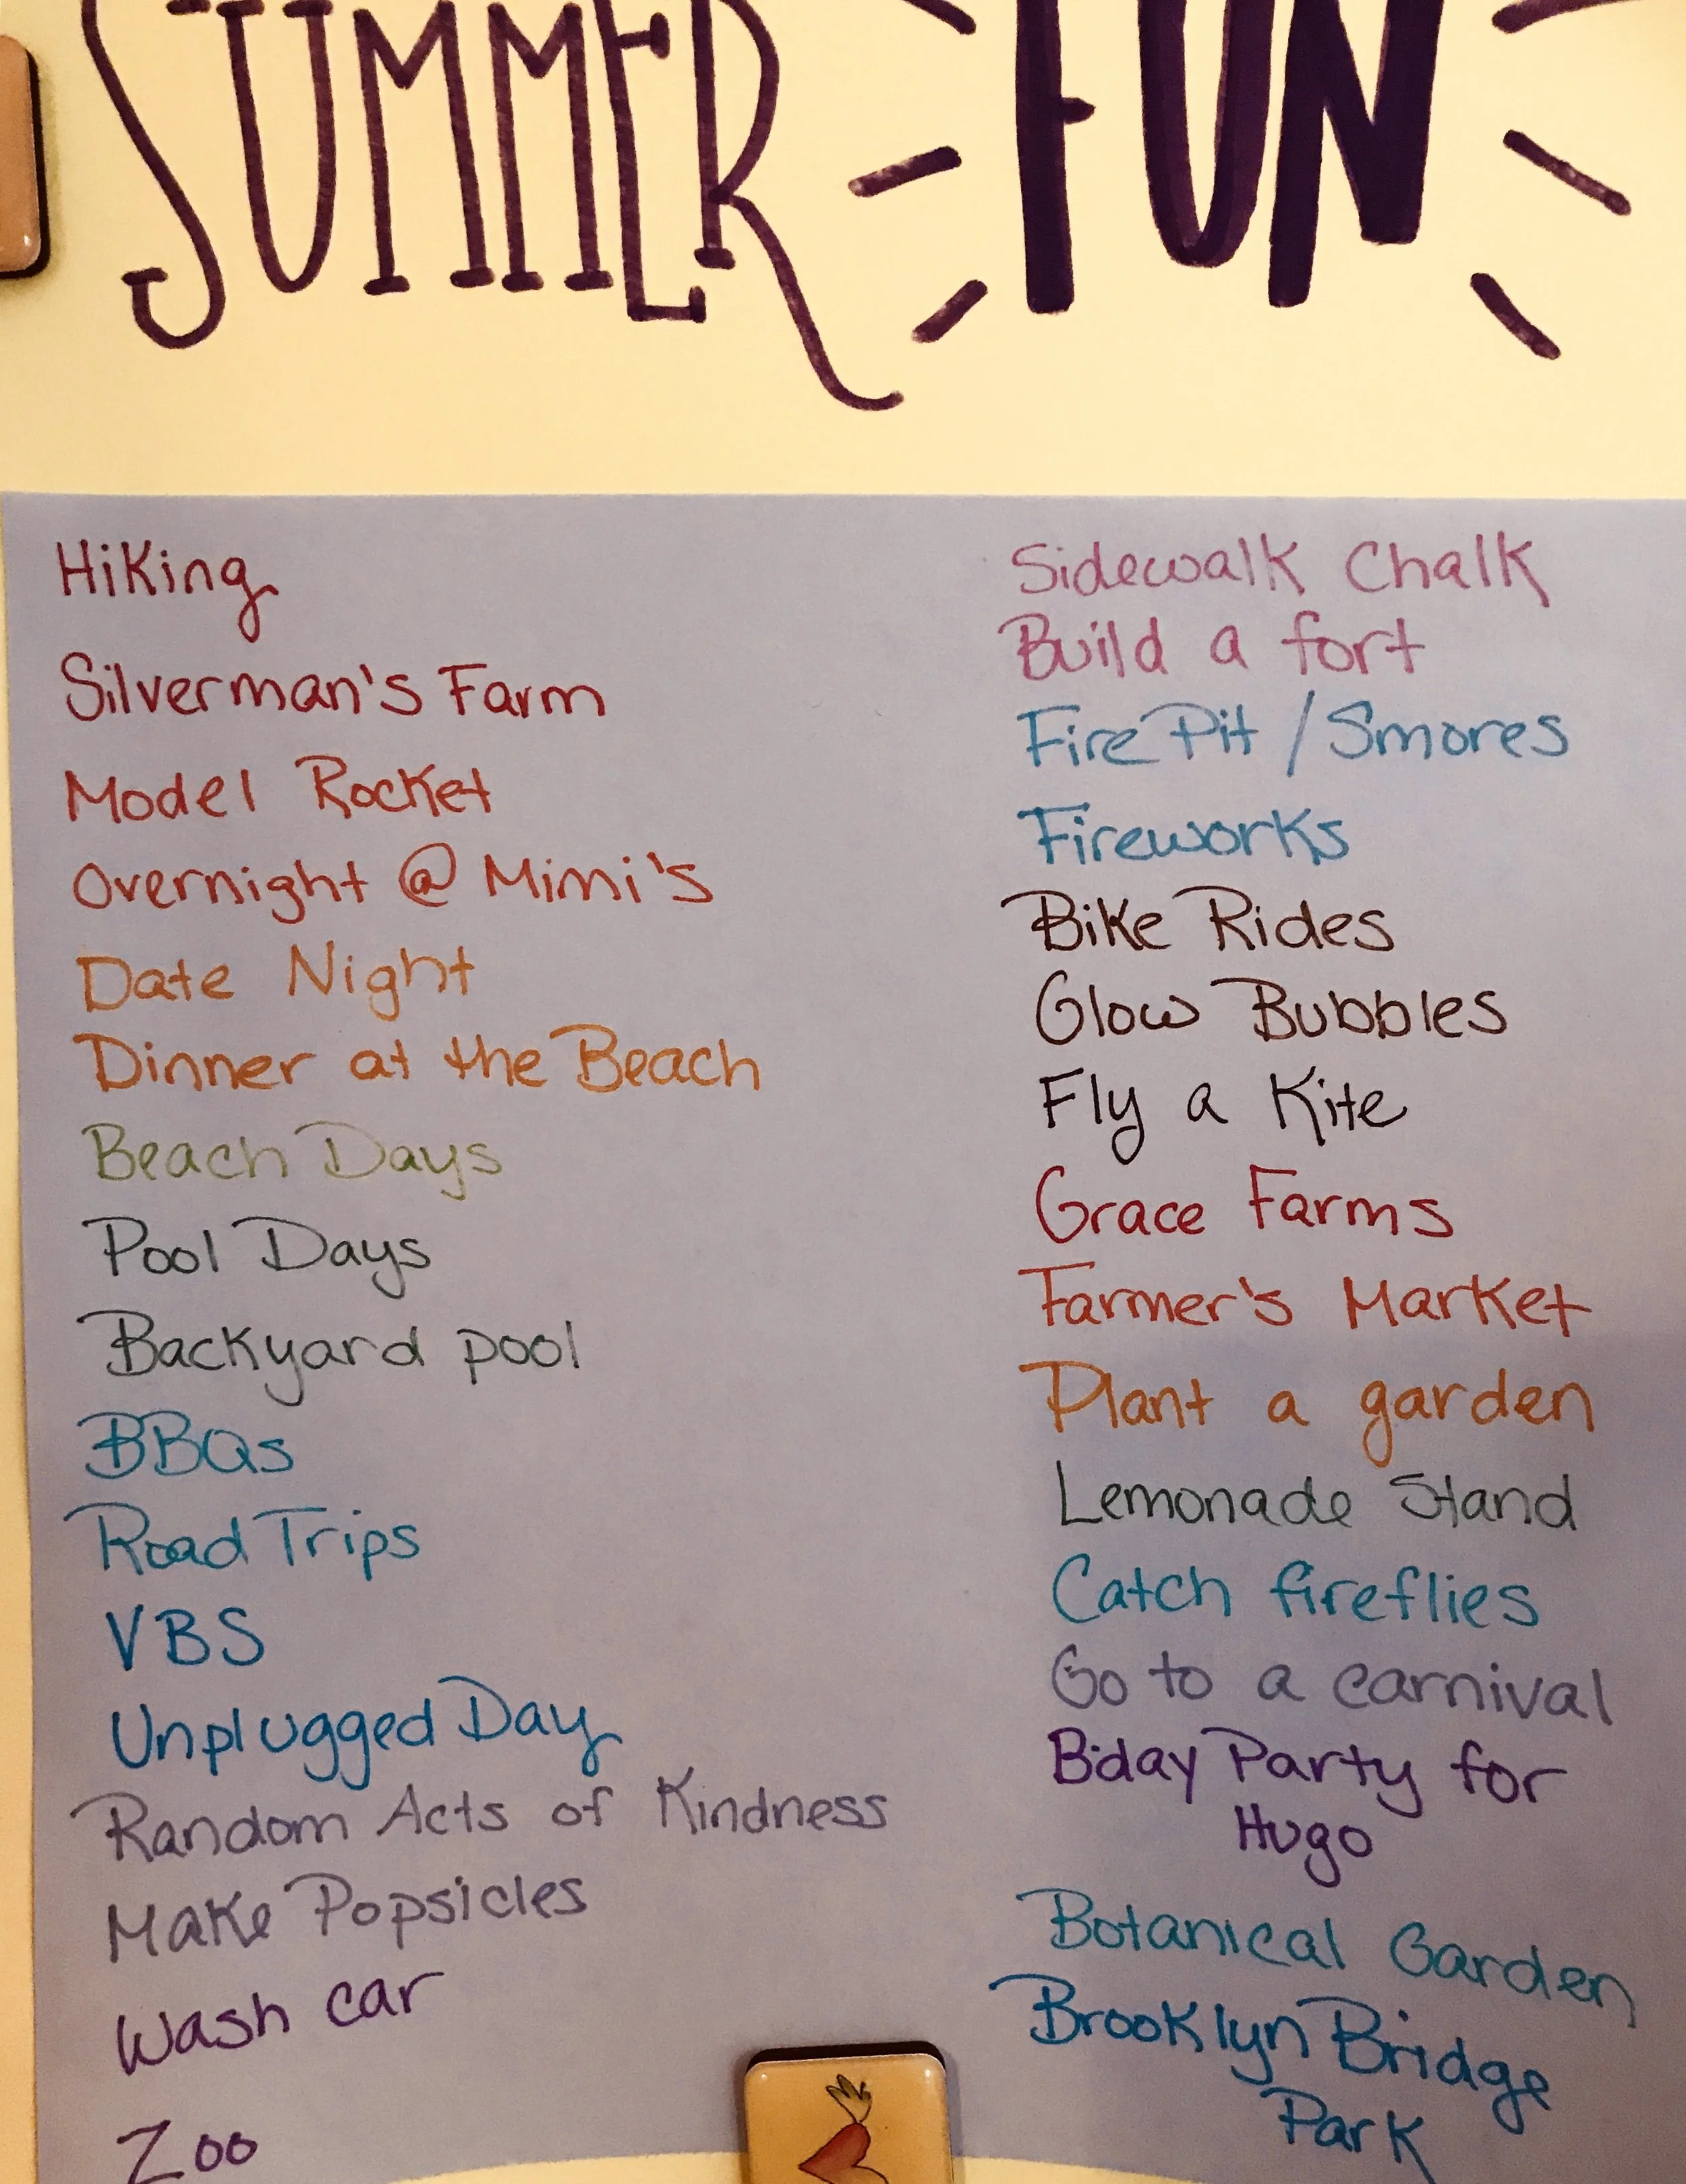 SUMMER FUN
Hiking
Silverman's Farm
Model Rocket
Overnight @ Mimi's
Date Night
Dinner at the Beach
Beach Days
Pool Days
Backyard pool
BBQs
Road Trips
VBS
Unplugged Day
Random Acts of Kindness
Make Popsicles
Wash car
Zoo
Sidewalk Chalk
Build a fort
Fire Pit / Smores
Fireworks
Bike Rides
Glow Bubbles
Fly a Kite
Grace Farms
Farmer's Market
Plant a garden
Lemonade Stand
Catch fireflies
Go to a carnival
Bday Party for
Hugo
Botanical Garden
Brooklyn Bridge
Park